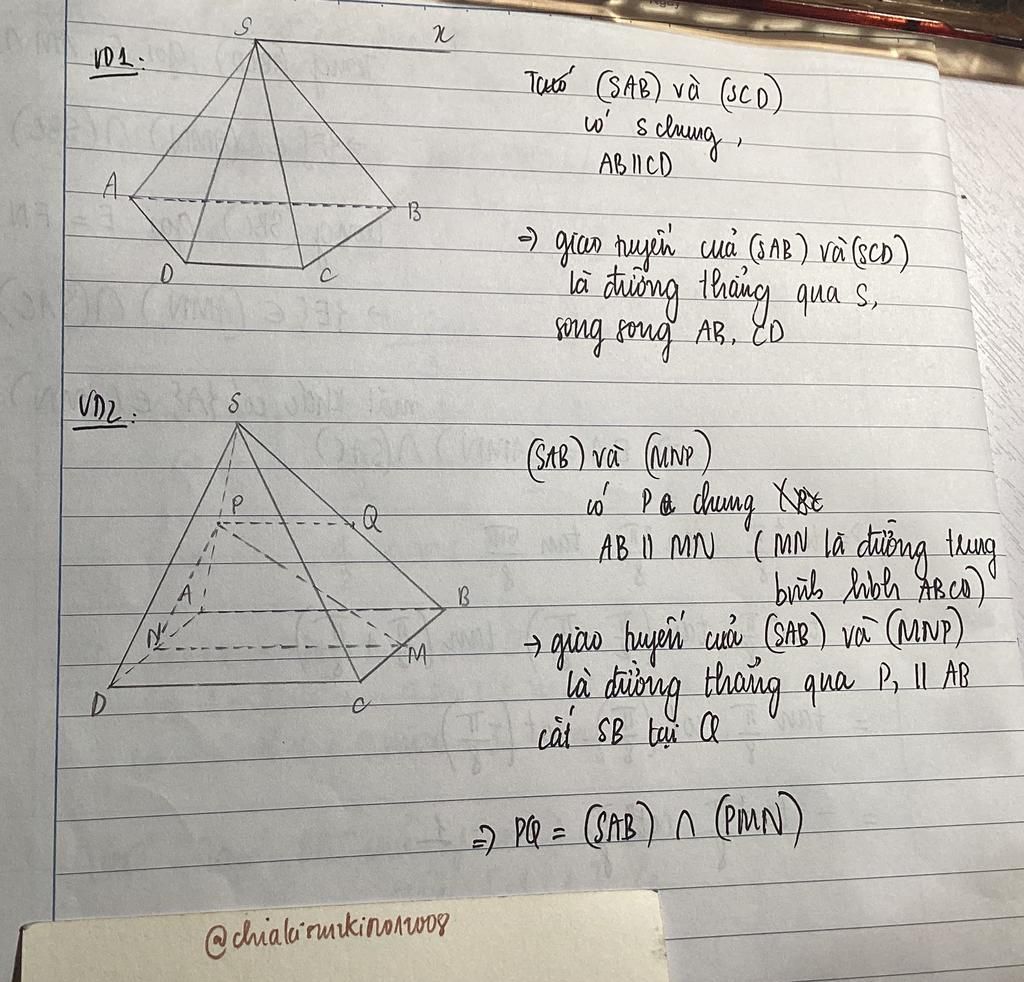 VD1:
S
x
A
B
D
C
(SAB) và (SCD)
có S chung,
AB // CD
=> giao tuyến cuả (SAB) và (SCD)
là đường thẳng qua S,
song song AB, CD
VD2:
S
P
Q
A
B
N
M
D
C
(SAB) và (MNP)
có P chung
AB // MN ( MN là đường trung
bình hbh ABCD)
→ giao tuyến cuả (SAB) và (MNP)
là đường thẳng qua P, // AB
cắt SB tại Q
=> PQ = (SAB) ∩ (PMN)